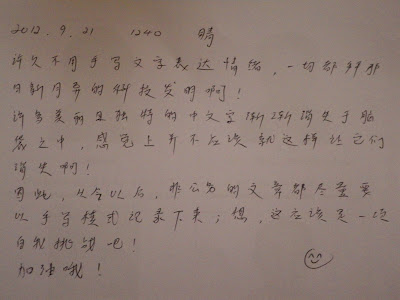 2012.9.21 1240 晴
许久不用手写文字表达情绪，一切都拜那
日新月异的科技发明啊！
许多美丽且独特的中文字渐渐消失于脑
袋之中，感觉上并不应该就这样让它们
消失啊！
因此，从今以后，非公务的文章都尽量要
以手写模式记录下来；想，这应该是一项
自我挑战吧！
加油哦！